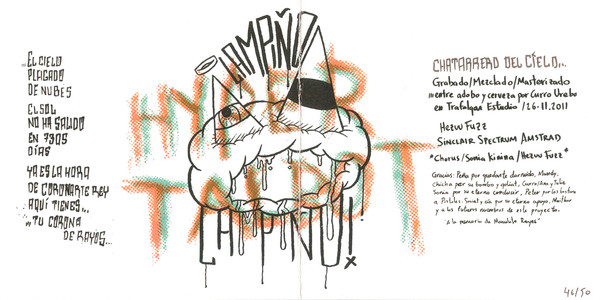 ..EL CIELO
PLAGADO
DE NUBES
EL SOL
NO HA SALIDO
EN 7305
DIAS
YA ES LA HORA
DE CORONARTE REY
AQUÍ TIENES...
..TU CORONA
DE RAYOS...
LAMPIÑO
HYPER
TALENT
LAMPIÑO!
CHATARRERO DEL CIELO...
Grabado/Mezclado/Masterizado
entre adobo y cerveza por Curro Ureba
en Trafalgar Estudio /26.11.2011
HEZUU FUZZ
SINCLAIR SPECTRUM AMSTRAD
*Chorus/Sonia Kinina/Hezuu Fuzz*
Gracias: Peña por quedarte dormido, Mundy,
Chicha por su bombo y
Sonia por su eterno conducir, Peter por los
a Pistolas. por su eterno apoyo,
y a los futuros miembros de este proyecto.
"A la memoria de Rayes"
46/50